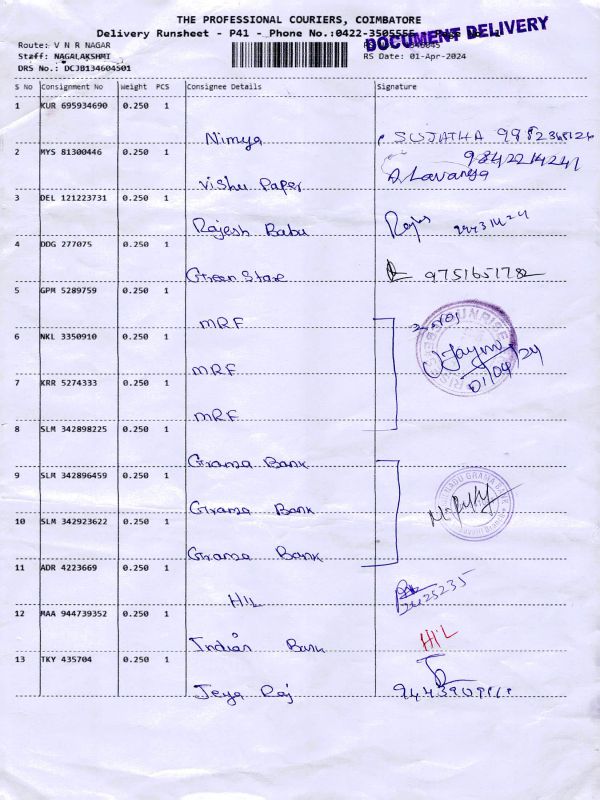 THE PROFESSIONAL COURIERS, COIMBATORE
Delivery Runsheet - P41 - Phone No.:0422-3505555
DOCUMENT DELIVERY
Route: V N R NAGAR
Staff: NAGALAKSHMI
RS Date: 01-Apr-2024
DRS No.: DCJB134604501
S No Consignment No Weight PCS Consignee Details Signature
1 KUR 695934690 0.250 1
Nimya SUJATHA
2 MYS 81300446 0.250 1
9842214241
Vishu Paper D. Lavanya
3 DEL 121223731 0.250 1
Rajesh Babu
4 DDG 277075 0.250 1
Green Stare 9751651782
5 GPM 5289759 0.250 1
MRF
6 NKL 3350910 0.250 1
MRF
01/04/24
7 KRR 5274333 0.250 1
MRF
8 SLM 342898225 0.250 1
Grama Bank
9 SLM 342896459 0.250 1
Grama Bank
10 SLM 342923622 0.250 1
Grama Bank
11 ADR 4223669 0.250 1
HIL 2425235
12 MAA 944739352 0.250 1
Indian Bank HIL
13 TKY 435704 0.250 1
Jeya Raj